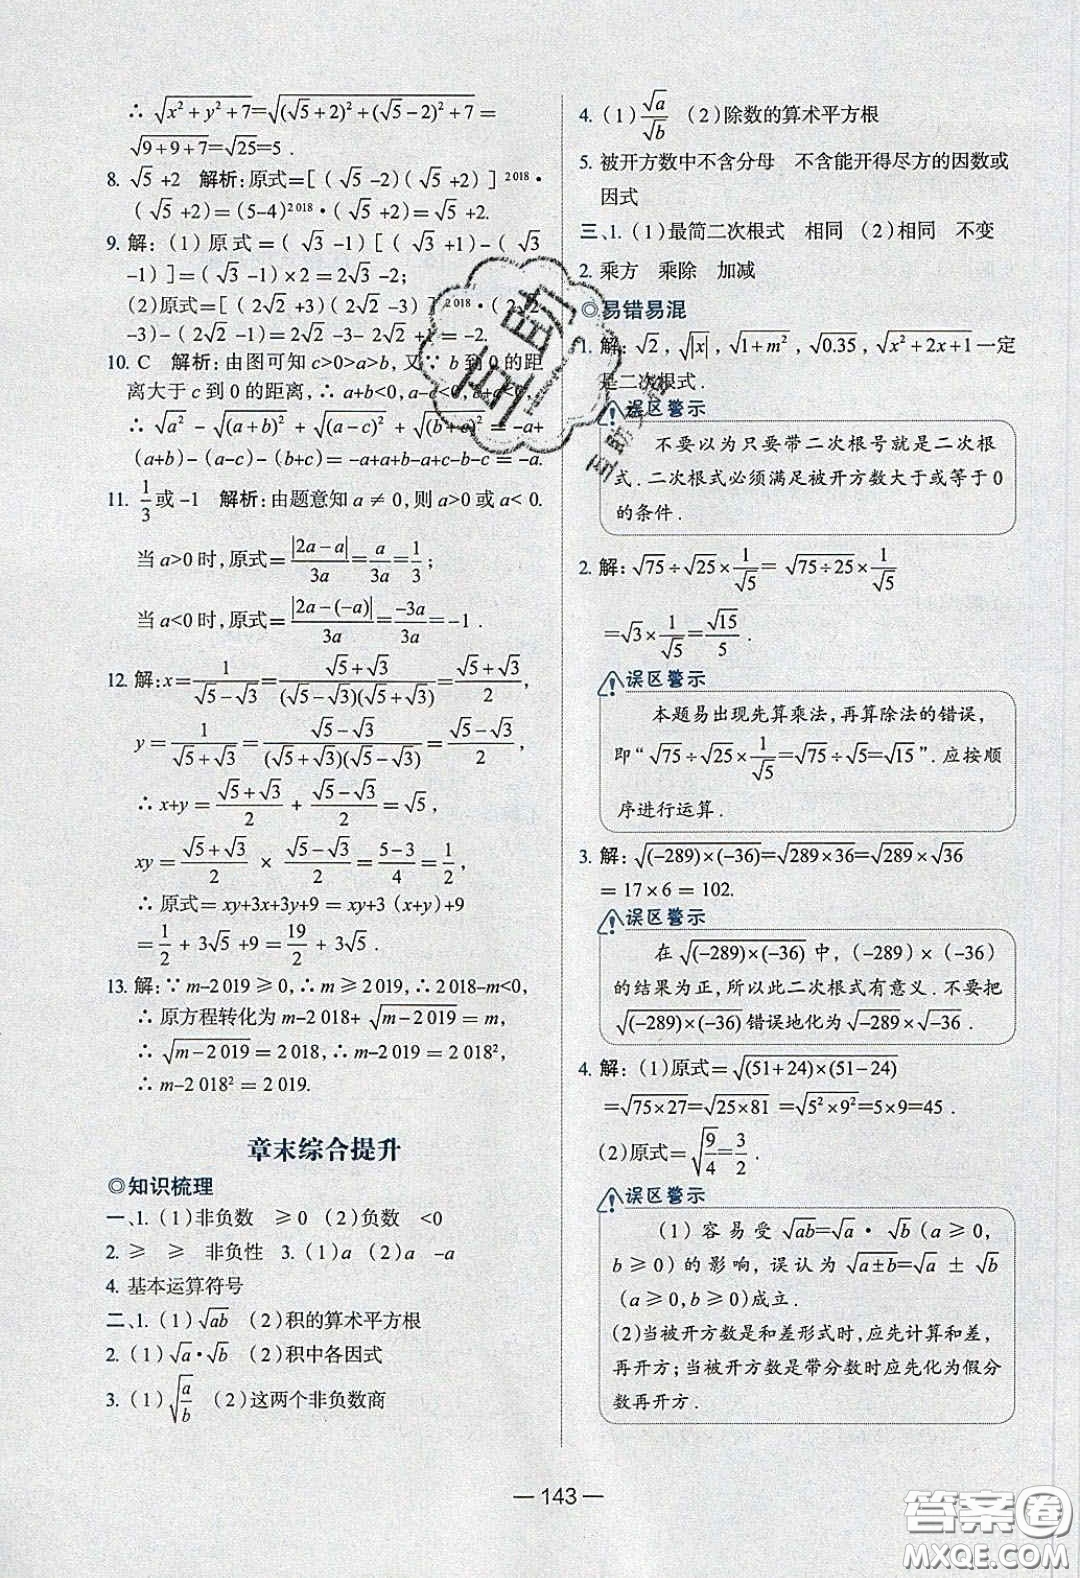 ∴ √(x²+y²+7)=√((√5+2)²+(√5-2)²+7)=
√(9+9+7)=√25=5.
8. √5+2 解析:原式=[(√5-2)(√5+2)]²⁰¹⁸·
(√5+2)=(5-4)²⁰¹⁸·(√5+2)=√5+2.
9. 解:(1)原式=(√3-1)[(√3+1)-(√3
-1)]=(√3-1)×2=2√3-2;
(2)原式=[(2√2+3)(2√2-3)]²⁰¹⁸·(2√2
-3)-(2√2-1)=2√2-3-2√2+1=-2.
10. C 解析:由图可知c>0>a>b,又∵b到0的距
离大于c到0的距离,∴a+b<0,a-c<0,b+c<0.
∴ √a²-√(a+b)²+√(a-c)²+√(b+c)²=-a+
(a+b)-(a-c)-(b+c)=-a+a+b-a+c-b-c=-a.
11. 1/3或-1 解析:由题意知a≠0,则a>0或a<0.
当a>0时,原式=|2a-a|/3a=a/3a=1/3;
当a<0时,原式=|2a-(-a)|/3a=-3a/3a=-1.
12. 解:x=1/(√5-√3)=(√5+√3)/((√5-√3)(√5+√3))=(√5+√3)/2,
y=1/(√5+√3)=(√5-√3)/((√5+√3)(√5-√3))=(√5-√3)/2,
∴x+y=(√5+√3)/2+(√5-√3)/2=√5,
xy=(√5+√3)/2×(√5-√3)/2=(5-3)/4=1/2,
∴原式=xy+3x+3y+9=xy+3(x+y)+9
=1/2+3√5+9=19/2+3√5.
13. 解:∵m-2 019≥0,∴m≥2 019,∴2 018-m<0,
∴原方程转化为m-2 018+√(m-2 019)=m,
∴√(m-2 019)=2 018,∴m-2 019=2 018²,
∴m-2 018²=2 019.
章末综合提升
◎知识梳理
一、1.(1)非负数 ≥0 (2)负数 <0
2. ≥ ≥ 非负性 3.(1)a (2)a -a
4. 基本运算符号
二、1.(1)√ab (2)积的算术平方根
2.(1)√a·√b (2)积中各因式
3.(1)√(a/b) (2)这两个非负数商
4.(1)√a/√b (2)除数的算术平方根
5. 被开方数中不含分母 不含能开得尽方的因数或
因式
三、1.(1)最简二次根式 相同 (2)相同 不变
2. 乘方 乘除 加减
◎易错易混
1. 解:√2,√|x|,√(1+m²),√0.35,√(x²+2x+1)一定
是二次根式.
误区警示
不要以为只要带二次根号就是二次根
式.二次根式必须满足被开方数大于或等于0
的条件.
2. 解:√75÷√25×1/√5=√(75÷25)×1/√5
=√3×1/√5=√15/5.
误区警示
本题易出现先算乘法,再算除法的错误,
即“√75÷√25×1/√5=√75÷√5=√15”.应按顺
序进行运算.
3. 解:√((-289)×(-36))=√(289×36)=√289×√36
=17×6=102.
误区警示
在√((-289)×(-36))中,(-289)×(-36)
的结果为正,所以此二次根式有意义.不要把
√((-289)×(-36))错误地化为√-289×√-36.
4. 解:(1)原式=√((51+24)×(51-24))
=√(75×27)=√(25×81)=√(5²×9²)=5×9=45.
(2)原式=√(9/4)=3/2.
误区警示
(1)容易受√ab=√a·√b(a≥0,
b≥0)的影响,误认为√(a±b)=√a±√b
(a≥0,b≥0)成立.
(2)当被开方数是和差形式时,应先计算和差,
再开方;当被开方数是带分数时应先化为假分
数再开方.
— 143 —
答案圈
MXQE.COM